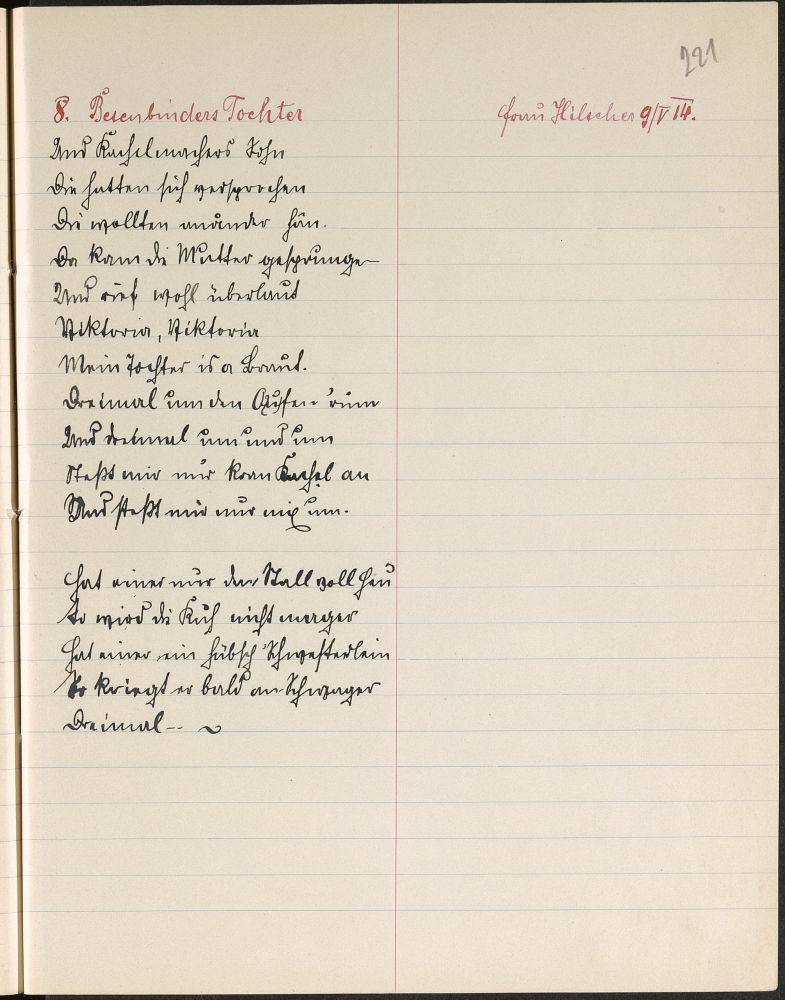 221
8. Besenbinders Tochter
Frau Hilscher 9/V 14.
Und Kachelmachers Sohn
Die hatten sich versprochen
Die wollten anånder hån.
Da kam die Mutter gesprunge
Und rief wohl überlaut
Viktoria, Viktoria
Mein Tochter is a Braut.
Dreimal um den Oufen 'rüm
Und dreimal um und um
Steßt mir nur kran Kachel an
Und steßt mir nur nix um.
Hat einer nur den Stall voll Heu
So wird die Kuh nicht mager
Hat einer ein hübsch' Schwesterlein
So kriegt er bald an Schwager
Dreimal --